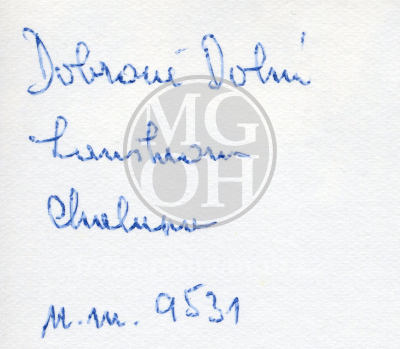 Dobrané Dolní
Lanškroun
Chalupa
n.m. 9531
MG
OH